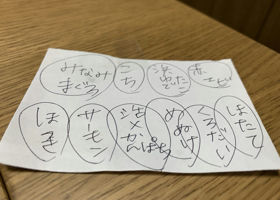 みなみ
まぐろ
こち
赤エビ
ほっき
サーモン
活〆
かんぱち
めぬけ
くろだい
ほたて